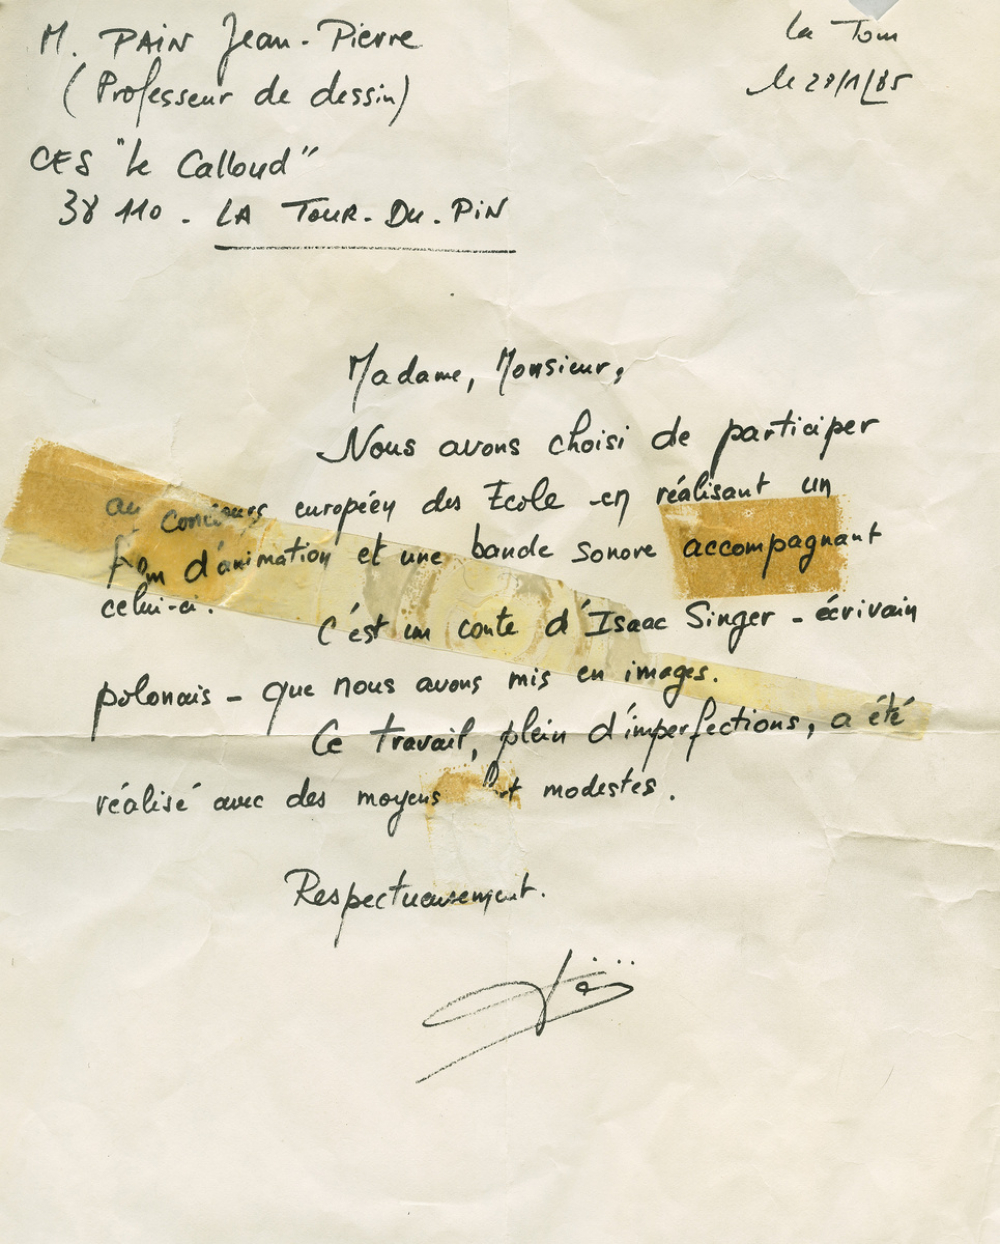 M. PAIN Jean-Pierre
(Professeur de dessin)
CES "Le Calloud"
38 110 - LA TOUR-DU-PIN
La Tour
le 28/1/85
Madame, Monsieur,
Nous avons choisi de participer
au concours européen des Ecole en réalisant un
film d'animation et une bande sonore accompagnant
celui-ci.
C'est un conte d'Isaac Singer - écrivain
polonais - que nous avons mis en images.
Ce travail, plein d'imperfections, a été
réalisé avec des moyens modestes.
Respectueusement.